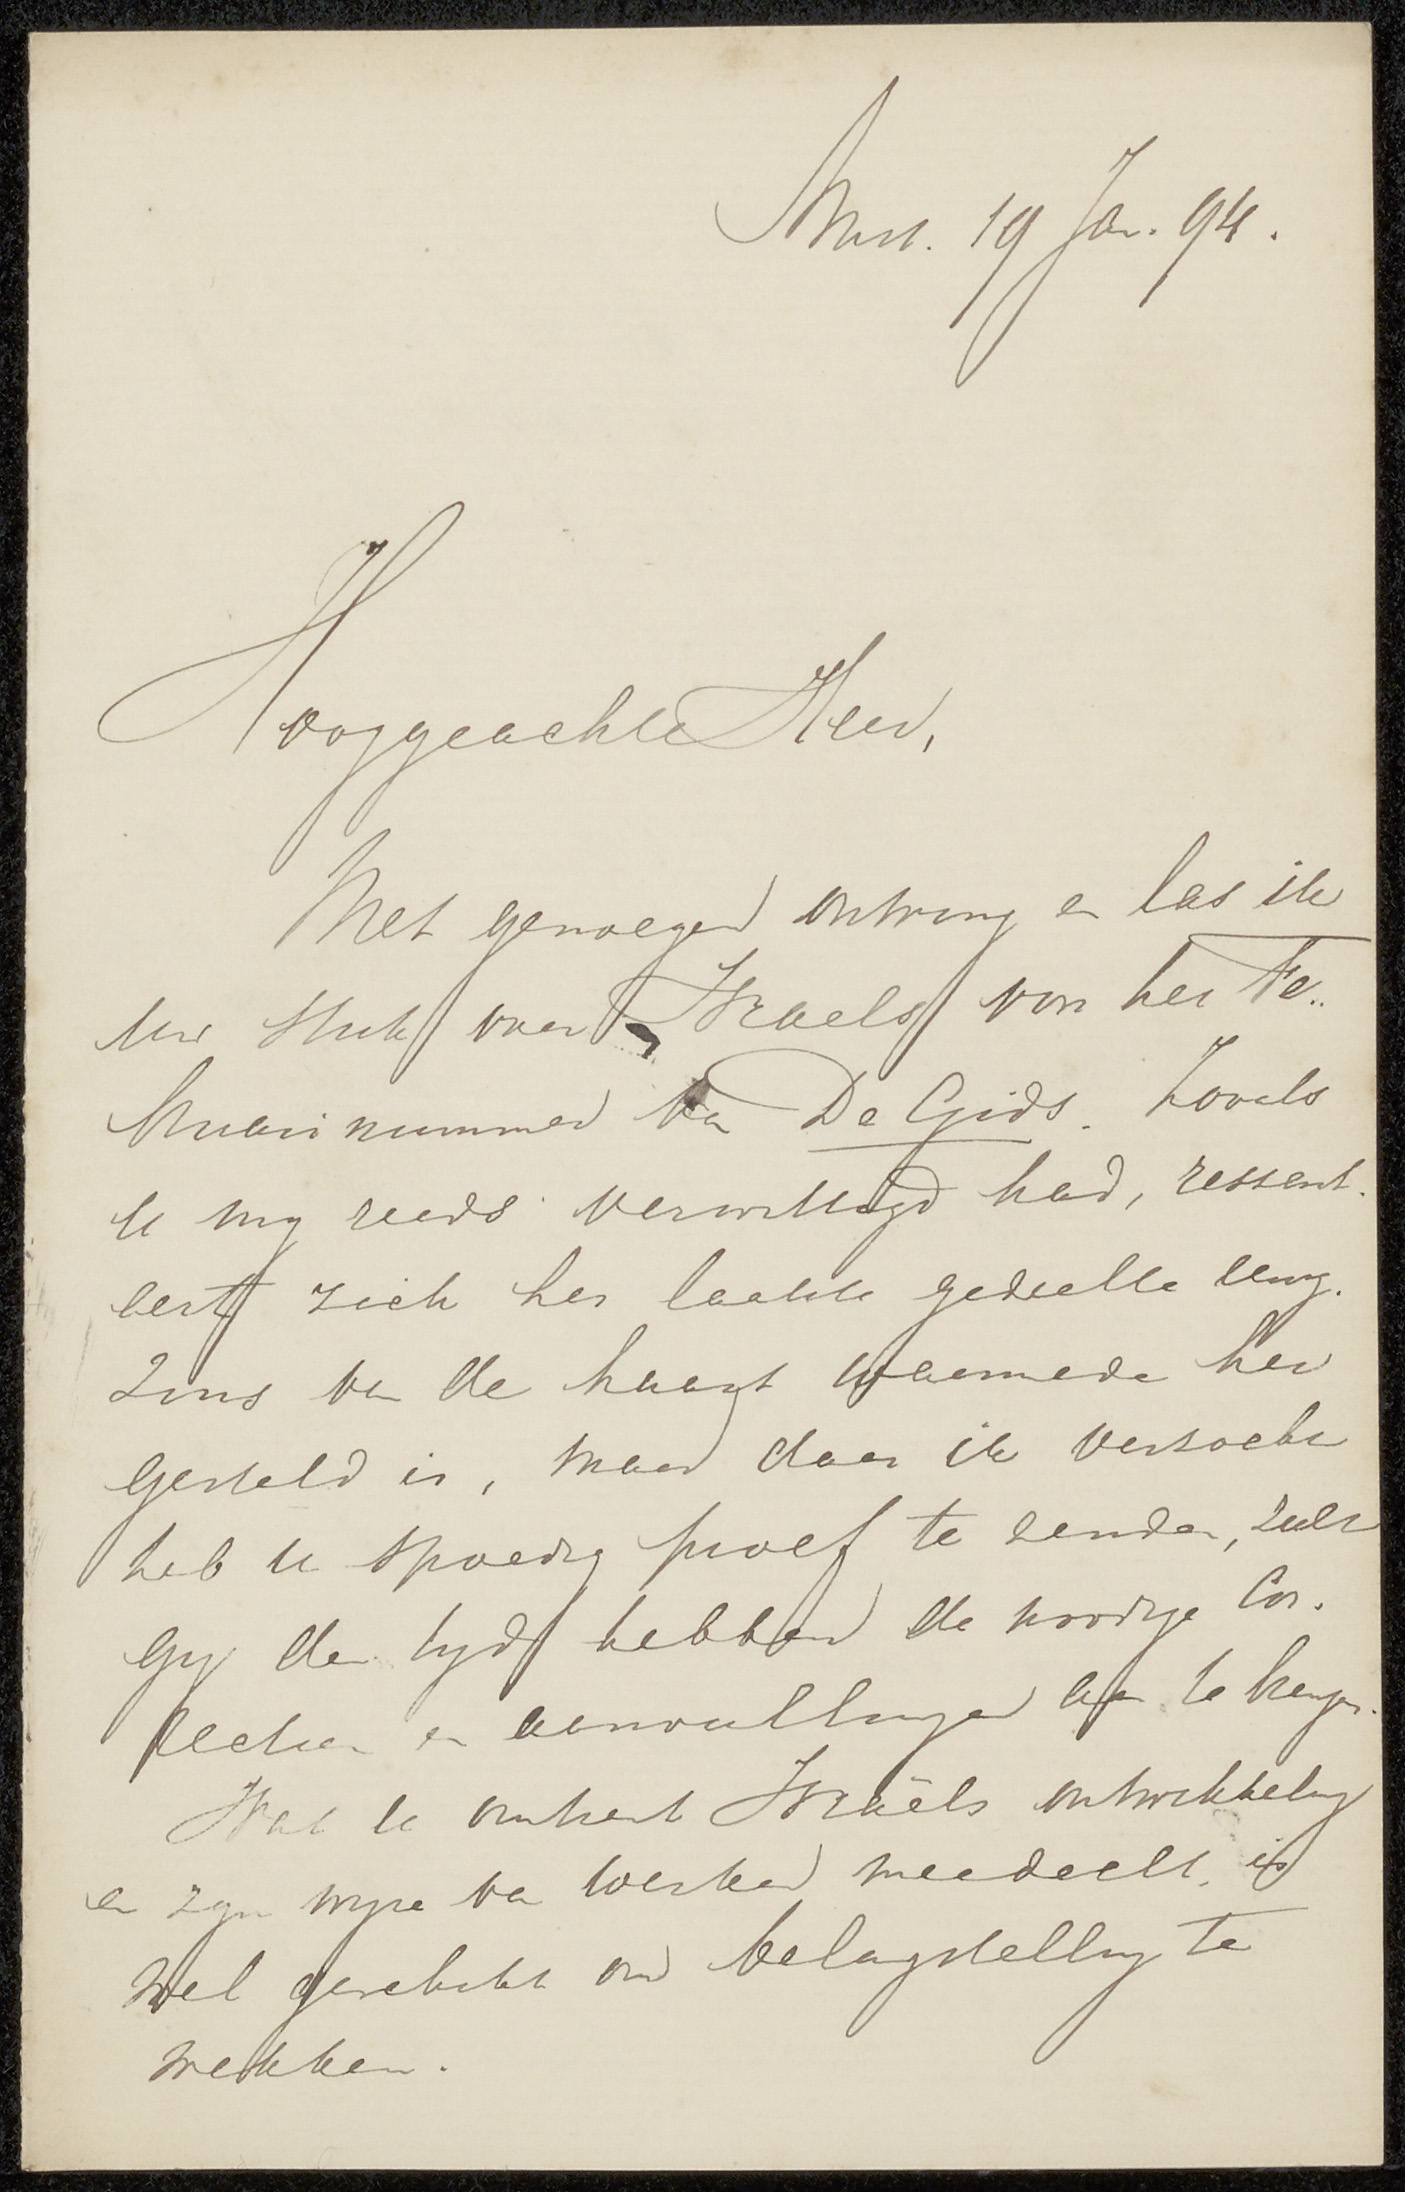 Amst. 19 Jan. 94.
Hooggeachte Heer,
Met genoegen ontving en las ik
Uw stuk over Israels voor het Fe-
bruari nummer van De Gids. Zooals
U mij reeds verwittigd had, ressent-
eert zich het laatste gedeelte eenig-
zins van de haast waarmede het
gesteld is, maar daar ik verzocht
heb U spoedig proef te zenden, zult
Gij den tijd hebben de noodige cor-
recties en aanvullingen aan te brengen.
Wat U omtrent Israëls ontwikkeling
en zijn wijze van werken meedeelt, is
wel geschikt om belangstelling te
wekken.